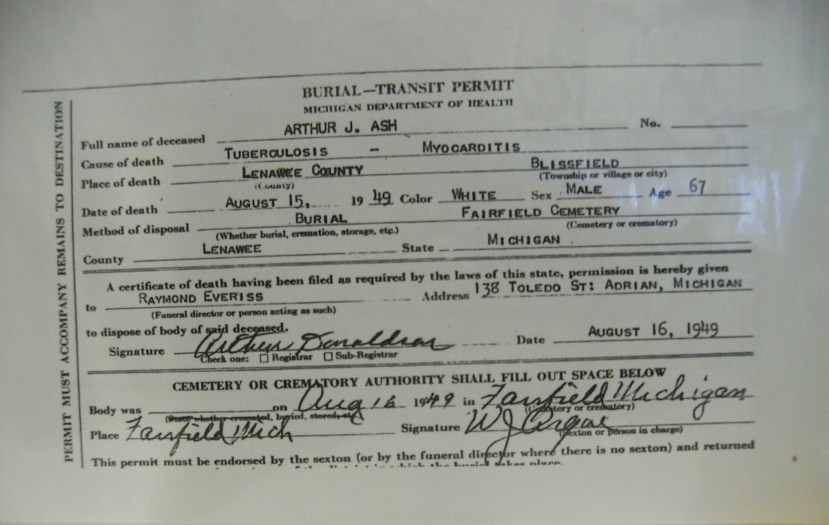 PERMIT MUST ACCOMPANY REMAINS TO DESTINATION
BURIAL—TRANSIT PERMIT
MICHIGAN DEPARTMENT OF HEALTH
Full name of deceased ARTHUR J. ASH No.
Cause of death TUBERCULOSIS - MYOCARDITIS
Place of death LENAWEE COUNTY BLISSFIELD
(County) (Township or village or city)
Date of death AUGUST 15, 1949 Color WHITE Sex MALE Age 67
Method of disposal BURIAL FAIRFIELD CEMETERY
(Whether burial, cremation, storage, etc.) (Cemetery or crematory)
County LENAWEE State MICHIGAN
A certificate of death having been filed as required by the laws of this state, permission is hereby given
to RAYMOND EVERISS Address 138 TOLEDO ST: ADRIAN, MICHIGAN
(Funeral director or person acting as such)
to dispose of body of said deceased.
Signature Arthur Donaldson Date AUGUST 16, 1949
Check one: ☐ Registrar ☐ Sub-Registrar
CEMETERY OR CREMATORY AUTHORITY SHALL FILL OUT SPACE BELOW
Body was on Aug 16 1949 in Fairfield Michigan
(State whether cremated, buried, stored, etc.) (Cemetery or crematory)
Place Fairfield Mich Signature W J
(Sexton or person in charge)
This permit must be endorsed by the sexton (or by the funeral director where there is no sexton) and returned
in which the burial takes place.